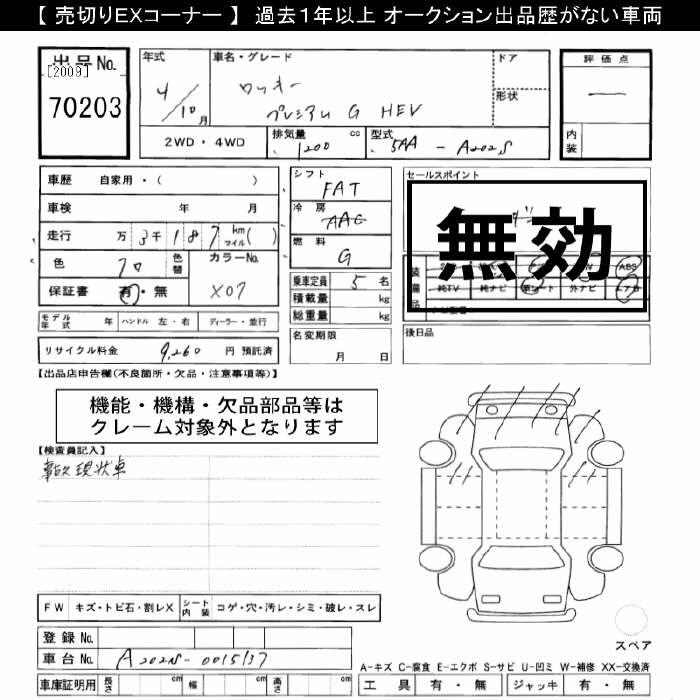 【 売切りEXコーナー 】 過去１年以上 オークション出品歴がない車両
出品No. [2009] 70203
年式 4/10月
車名・グレード ロッキー プレミアム G HEV
ドア
形状
評価点 —
内装
2WD・4WD 排気量 1200 cc 型式 5AA - A202S
車歴 自家用・( )
車検 年 月
走行 万 3千 1 8 7 km マイル ( )
色 クロ 色替 カラーNo. X07
保証書 有・無
シフト FAT
冷房 AAC
燃料 G
乗車定員 5 名
積載量 kg
総重量 kg
セールスポイント
無効
装備品 ABS
純TV 純ナビ 革シート 外ナビ エアB
後日品
モデル年式 年 ハンドル 左・右 ディーラー・並行
名変期限 月 日
リサイクル料金 9,260 円 預託済
【出品店申告欄(不良箇所・欠品・注意事項等)】
機能・機構・欠品部品等は
クレーム対象外となります
【検査員記入】
事故現状車
FW キズ・トビ石・割レX シート内装 コゲ・穴・汚レ・シミ・破レ・スレ
登録No.
車台No. A202S-0015137
車庫証明用 長さ cm 幅 cm 高さ cm
スペア
A-キズ C-腐食 E-エクボ S-サビ U-凹ミ W-補修 XX-交換済
工具 有・無 ジャッキ 有・無